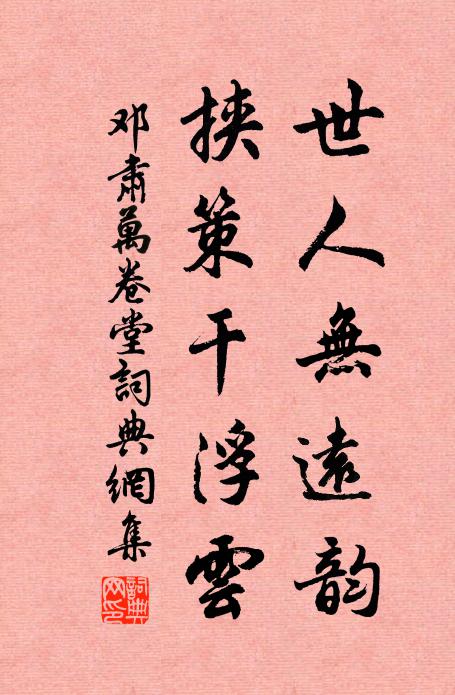 世人無遠韵
挟策干浮雲
邓肅萬卷堂詞典網集
詞典
網印